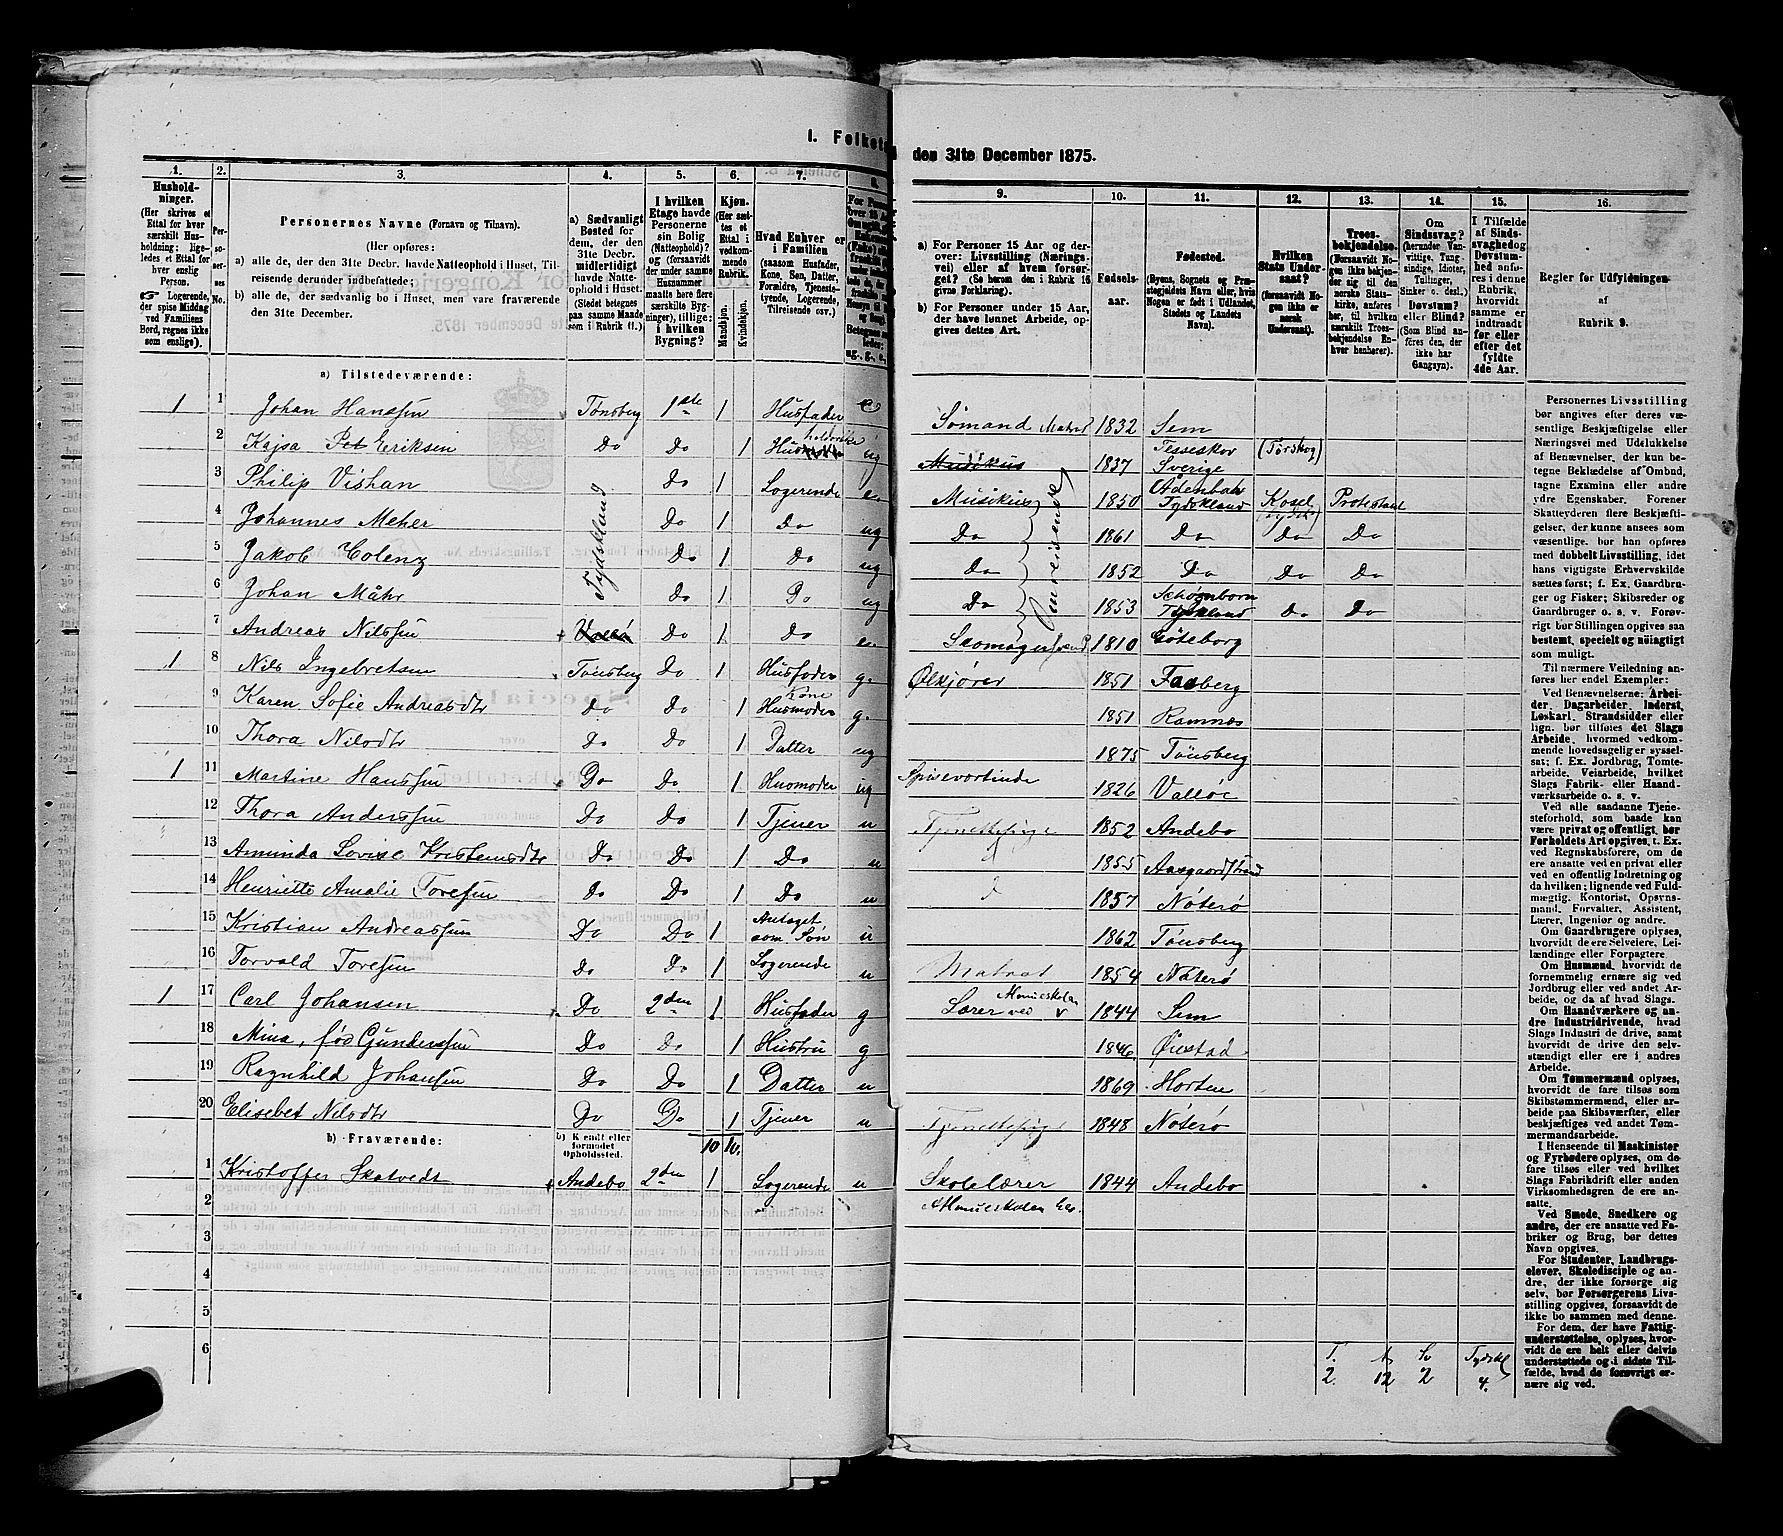 I. Folket
den 31te December 1875.
1.
Hushold-
ninger.
(Her skrives et
Ettal for hver
særskilt Hus-
holdning; lige-
ledes et Ettal for
hver enslig
Person.
Logerende,
der spise Middag
ved Familiens
Bord, regnes ikke
som enslige).
2.
Per-
so-
ner-
nes
No.
3.
Personernes Navne (Fornavn og Tilnavn).
(Her opføres:
a) alle de, der den 31te Decbr. havde Natteophold i Huset, Til-
reisende derunder indbefattede;
b) alle de, der sædvanlig bo i Huset, men vare fraværende
den 31te December.
4.
a) Sædvanligt
Bosted for
dem, der den
31te Decbr.
midlertidigt
havde Natte-
ophold i Huset.
(Stedet betegnes
paa samme Maade
som i Rubrik 11.).
5.
I hvilken
Etage havde
Personerne
sin Bolig
(Natteophold)?
og (forsaavidt
der under samme
Husnummer
maatte høre flere
særskilte Byg-
ninger), tillige:
i hvilken
Bygning?
6.
Kjøn.
(Her sæt-
tes et
Ettal i
vedkom-
mende
Rubrik.
Mandkjøn.
Kvindekjøn.
7.
Hvad Enhver er
i Familien
(saasom Husfader,
Kone, Søn, Datter,
Forældre, Tjeneste-
tyende, Logerende,
Tilreisende osv.)
8.
9.
a) For Personer 15 Aar og der-
over: Livsstilling (Nærings-
vei) eller af hvem forsør-
get? (Se herom den i Rubrik 16
givne Forklaring).
b) For Personer under 15 Aar,
der have lønnet Arbeide, op-
gives dettes Art.
10.
Fødsels-
aar.
11.
Fødested.
(Byens, Sognets og Præ-
stegjeldets Navn eller, hvis
Nogen er født i Udlandet,
Stedets og Landets
Navn).
12.
Hvilken
Stats Under-
saat?
(forsaavidt No-
gen ikke er
norsk
Undersaat).
13.
Troes-
bekjendelse.
(Forsaavidt No-
gen ikke beken-
der sig til den
norske Stats-
kirke, anføres
her, til hvilken
særskilt Troes-
bekjendelse En-
hver henhører).
14.
Om
Sindssvag?
(herunder Van-
vittige, Tung-
sindige, Idioter,
Tullinger,
Sinker o. desl.)
Døvstum?
eller Blind?
(Som Blind an-
føres den, der
ikke har
Gangsyn).
15.
I Tilfælde
af Sinds-
svaghed og
Døvstum-
hed anfø-
res i denne
Rubrik,
hvorvidt
samme er
indtraadt
før eller
efter det
fyldte
4de Aar.
16.
Regler for Udfyldningen
af
Rubrik 9.
a) Tilstedeværende:
1 1 Johan Hanssen Tønsberg 1ste 1 Husfader e Sømand Matros 1832 Sem
2 Kajsa Eriksen Do Do 1 ug Musikus 1837 Sverige
3 Philip Vishan Do 1 Logerende e. Musikus 1850 Tydskland Kosel Protestant
4 Johannes Meher Do 1 Do ug Do 1861 Do Do Do
5 Jakob Colenz Do 1 Do ug Do 1852 Do Do Do
6 Johan Måhr Do 1 Do ug Do 1853 Schønborn Tydskland Do Do
Tydskland
Omreisende
7 Andreas Nilssen Do 1 Do e. 1810 Göteborg
1 8 Nils Ingebretsen Tønsberg Do 1 Husfader g. Ølkjører 1851 Faaberg
9 Karen Sofie Andreasdtr Do Do 1 Kone Husmoder g. 1851 Ramnæs
10 Thora Nilsdtr Do Do 1 Datter ug 1875 Tønsberg
1 11 Martine Hanssen Do Do 1 Husmoder ug Spisevertinde 1826 Valløe
12 Thora Anderssen Do Do 1 Tjener u Tjenestepige 1852 Andebo
13 Aminda Lovise Kristensdtr Do Do 1 Do u 1855 Aasgaardstrand
14 Henriette Amalie Toresen Do Do 1 Do u 1857 Nøterø
15 Kristian Andreassen Do Do 1 Antaget som Søn u 1862 Tønsberg
16 Torvald Toresen Do Do 1 Logerende u Matros 1854 Nøterø
1 17 Carl Johansen Do 2den 1 Husfader g Lærer ved 1844 Sem
18 Mina, fød Gunderssen Do Do 1 Hustru g 1846 Øiestad
19 Ragnhild Johansen Do Do 1 Datter u 1869 Horten
20 Elisebet Nilsdtr Do Do 1 Tjener u Tjenestepige 1848 Nøterø
b) Fraværende:
b) Kjendt eller
formodet
Opholdssted.
10 10.
1 Kristoffer Skatvedt Andebo 2den 1 Logerende u Skolelærer 1844 Andebo
2
3
4
5
6
T. Sv Tydskl
2. 12 2 4.
Personernes Livsstilling
bør angives efter deres væ-
sentlige Beskjæftigelse eller
Næringsvei med Udelukkelse
af Benævnelser, der kun be-
tegne Beklædelse af Ombud,
tagne Examina eller andre
ydre Egenskaber. Forener
Skatteyderen flere Beskjæfti-
gelser, der kunne ansees som
væsentlige, bør han opføres
med dobbelt Livsstilling, idet
hans vigtigste Erhvervskilde
sættes først; f. Ex. Gaardbru-
ger og Fisker; Skibsreder og
Gaardbruger o. s. v. Forøv-
rigt bør Stillingen opgives saa
bestemt, specielt og nøiagtigt
som muligt.
Til nærmere Veiledning an-
føres her endel Exempler:
Ved Benævnelserne: Arbei-
der, Dagarbeider, Inderst,
Løskarl, Strandsidder eller
lign. bør tilføies det Slags
Arbeide, hvormed vedkom-
mende hovedsagelig er syssel-
sat; f. Ex. Jordbrug, Tomte-
arbeide, Veiarbeide, hvilket
Slags Fabrik- eller Haand-
værksarbeide o. s. v.
Ved alle saadanne Tjene-
steforhold, som baade kan
være privat og offentligt, bør
Forholdets Art opgives, t. Ex.
ved Regnskabsførere, om de
ere ansatte ved en privat eller
ved en offentlig Indretning og
da hvilken; lignende ved Fuld-
mægtig, Kontorist, Opsyns-
mand, Forvalter, Assistent,
Lærer, Ingeniør og andre.
Om Gaardbrugere oplyses,
hvorvidt de ere Selveiere, Lei-
lændinge eller Forpagtere
Om Husmænd, hvorvidt de
fornemmelig ernære sig ved
Jordbrug eller ved andet Ar-
beide, og da af hvad Slags.
Om Haandværkere og an-
dre Industridrivende, hvad
Slags Industri de drive, samt
hvorvidt de drive den selv-
stændigt eller ere i andres
Arbeide.
Om Tømmermænd oplyses,
hvorvidt de fare tilsøs som
Skibstømmermænd, eller ar-
beide paa Skibsværfter, eller
beskjæftiges ved andet Tøm-
mermandsarbeide.
I Henseende til Maskinister
og Fyrbødere oplyses, om de
fare tilsøs eller ved hvilket
Slags Fabrikdrift eller anden
Virksomhedsgren de ere an-
satte.
Ved Smede, Snedkere og
andre, der ere ansatte ved Fa-
briker og Brug, bør dettes
Navn opgives.
For Studenter, Landbrugs-
elever, Skoledisciple og an-
dre, der ikke forsørge sig
selv, bør Forsørgerens Livs-
stilling opgives, forsaavidt de
ikke bo sammen med denne.
For dem, der have Fattig-
understøttelse, oplyses, hvor-
vidt de ere helt eller delvis
understøttede og i sidste Til-
fælde, hvad de forøvrigt er-
nære sig ved.